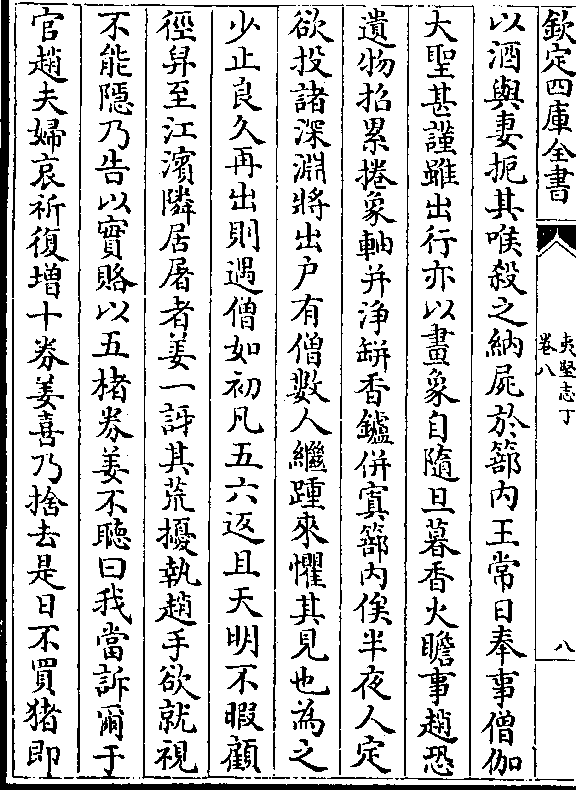 欽定四庫全書
夷堅志丁
卷八
八
以酒與妻扼其喉殺之納屍於篰内王常日奉事僧伽
大聖甚謹雖出行亦以畫象自隨旦暮香火瞻事趙恐
遺物招累捲象軸并浄缾香鑪併寘篰内俟半夜人定
欲投諸深淵將出户有僧數人繼踵來懼其見也為之
少止良久再出則遇僧如初凡五六返且天明不暇顧
徑舁至江濱隣居屠者姜一訝其荒擾執趙手欲就視
不能隱乃告以實賂以五楮劵姜不聽曰我當訴爾于
官趙夫婦哀祈復增十劵姜喜乃捨去是日不買猪即